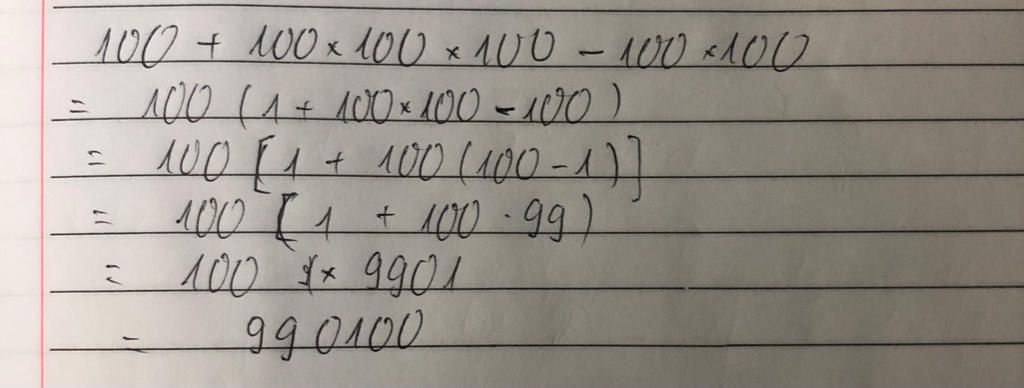 100 + 100 × 100 × 100 - 100 × 100
= 100 (1 + 100 × 100 - 100)
= 100 [1 + 100 (100 - 1)]
= 100 [1 + 100 · 99)
= 100 × 9901
= 990100